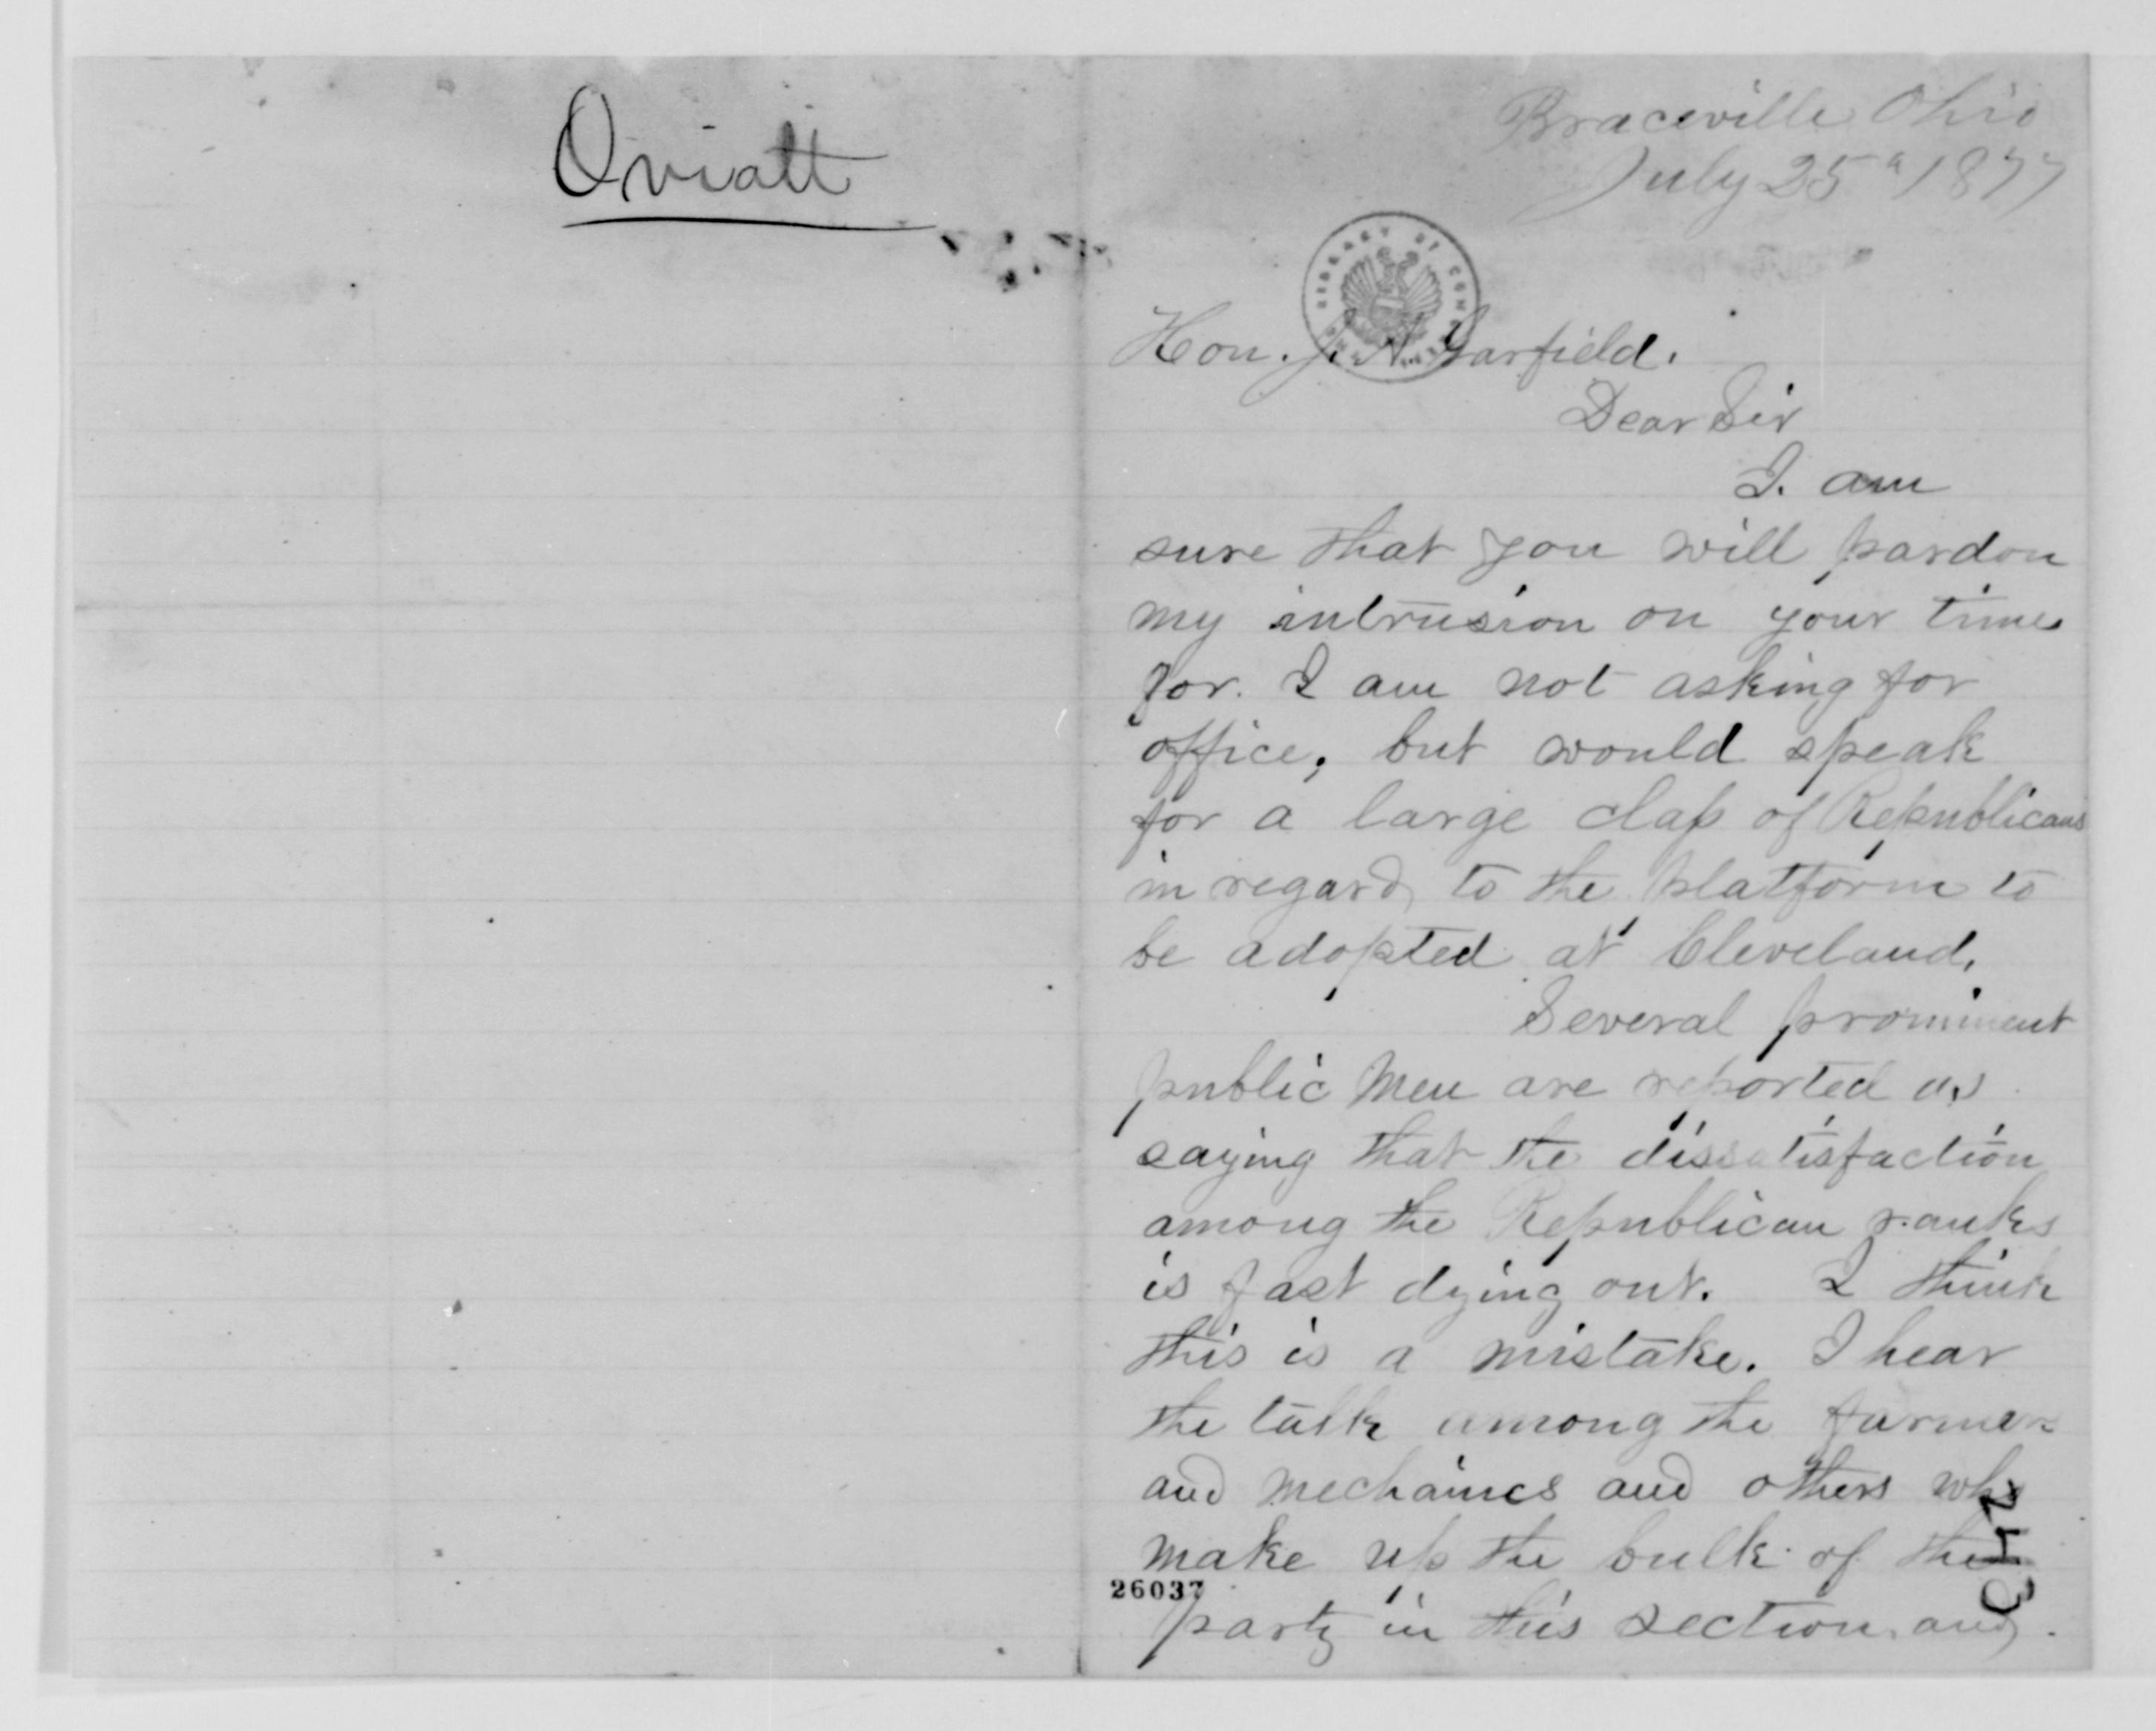 Oviatt
Braceville Ohio
July 25th 1877
Hon. J. A. Garfield.
Dear Sir
I. am
sure that you will pardon
my intrusion on your time
for. I am not asking for
office, but would speak
for a large class of Republicans
in regard to the platform to
be adopted at Cleveland.
Several prominent
public men are reported as
saying that the dissatisfaction
among the Republican ranks
is fast dying out. I think
this is a mistake. I hear
the talk among the farmers
and mechanics and others who
make up the bulk of the
26037
party in this section and